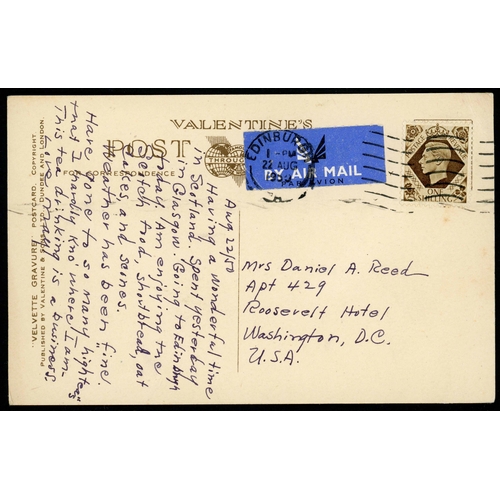 VALENTINE'S
POST
FOR CORRESPONDENCE
"VELVETTE GRAVURE" POSTCARD. COPYRIGHT.
PUBLISHED BY VALENTINE & SONS, LTD., DUNDEE AND LONDON.
THROUGH
EDINBURGH
1 - PM
22 AUG
1950
BY AIR MAIL
PAR AVION
ONE
SHILLING
Aug 22/50
Having a wonderful time
in Scotland. Spent yesterday
in Glasgow. Going to Edinburgh
today. Am enjoying the
Scotch food, shortbread, oat
cakes, and scones.
Weather has been fine.
Have gone to so many high teas
that I hardly know where I am.
This tea drinking is a business
Mrs Daniel A. Reed
Apt 429
Roosevelt Hotel
Washington, D.C.
U.S.A.